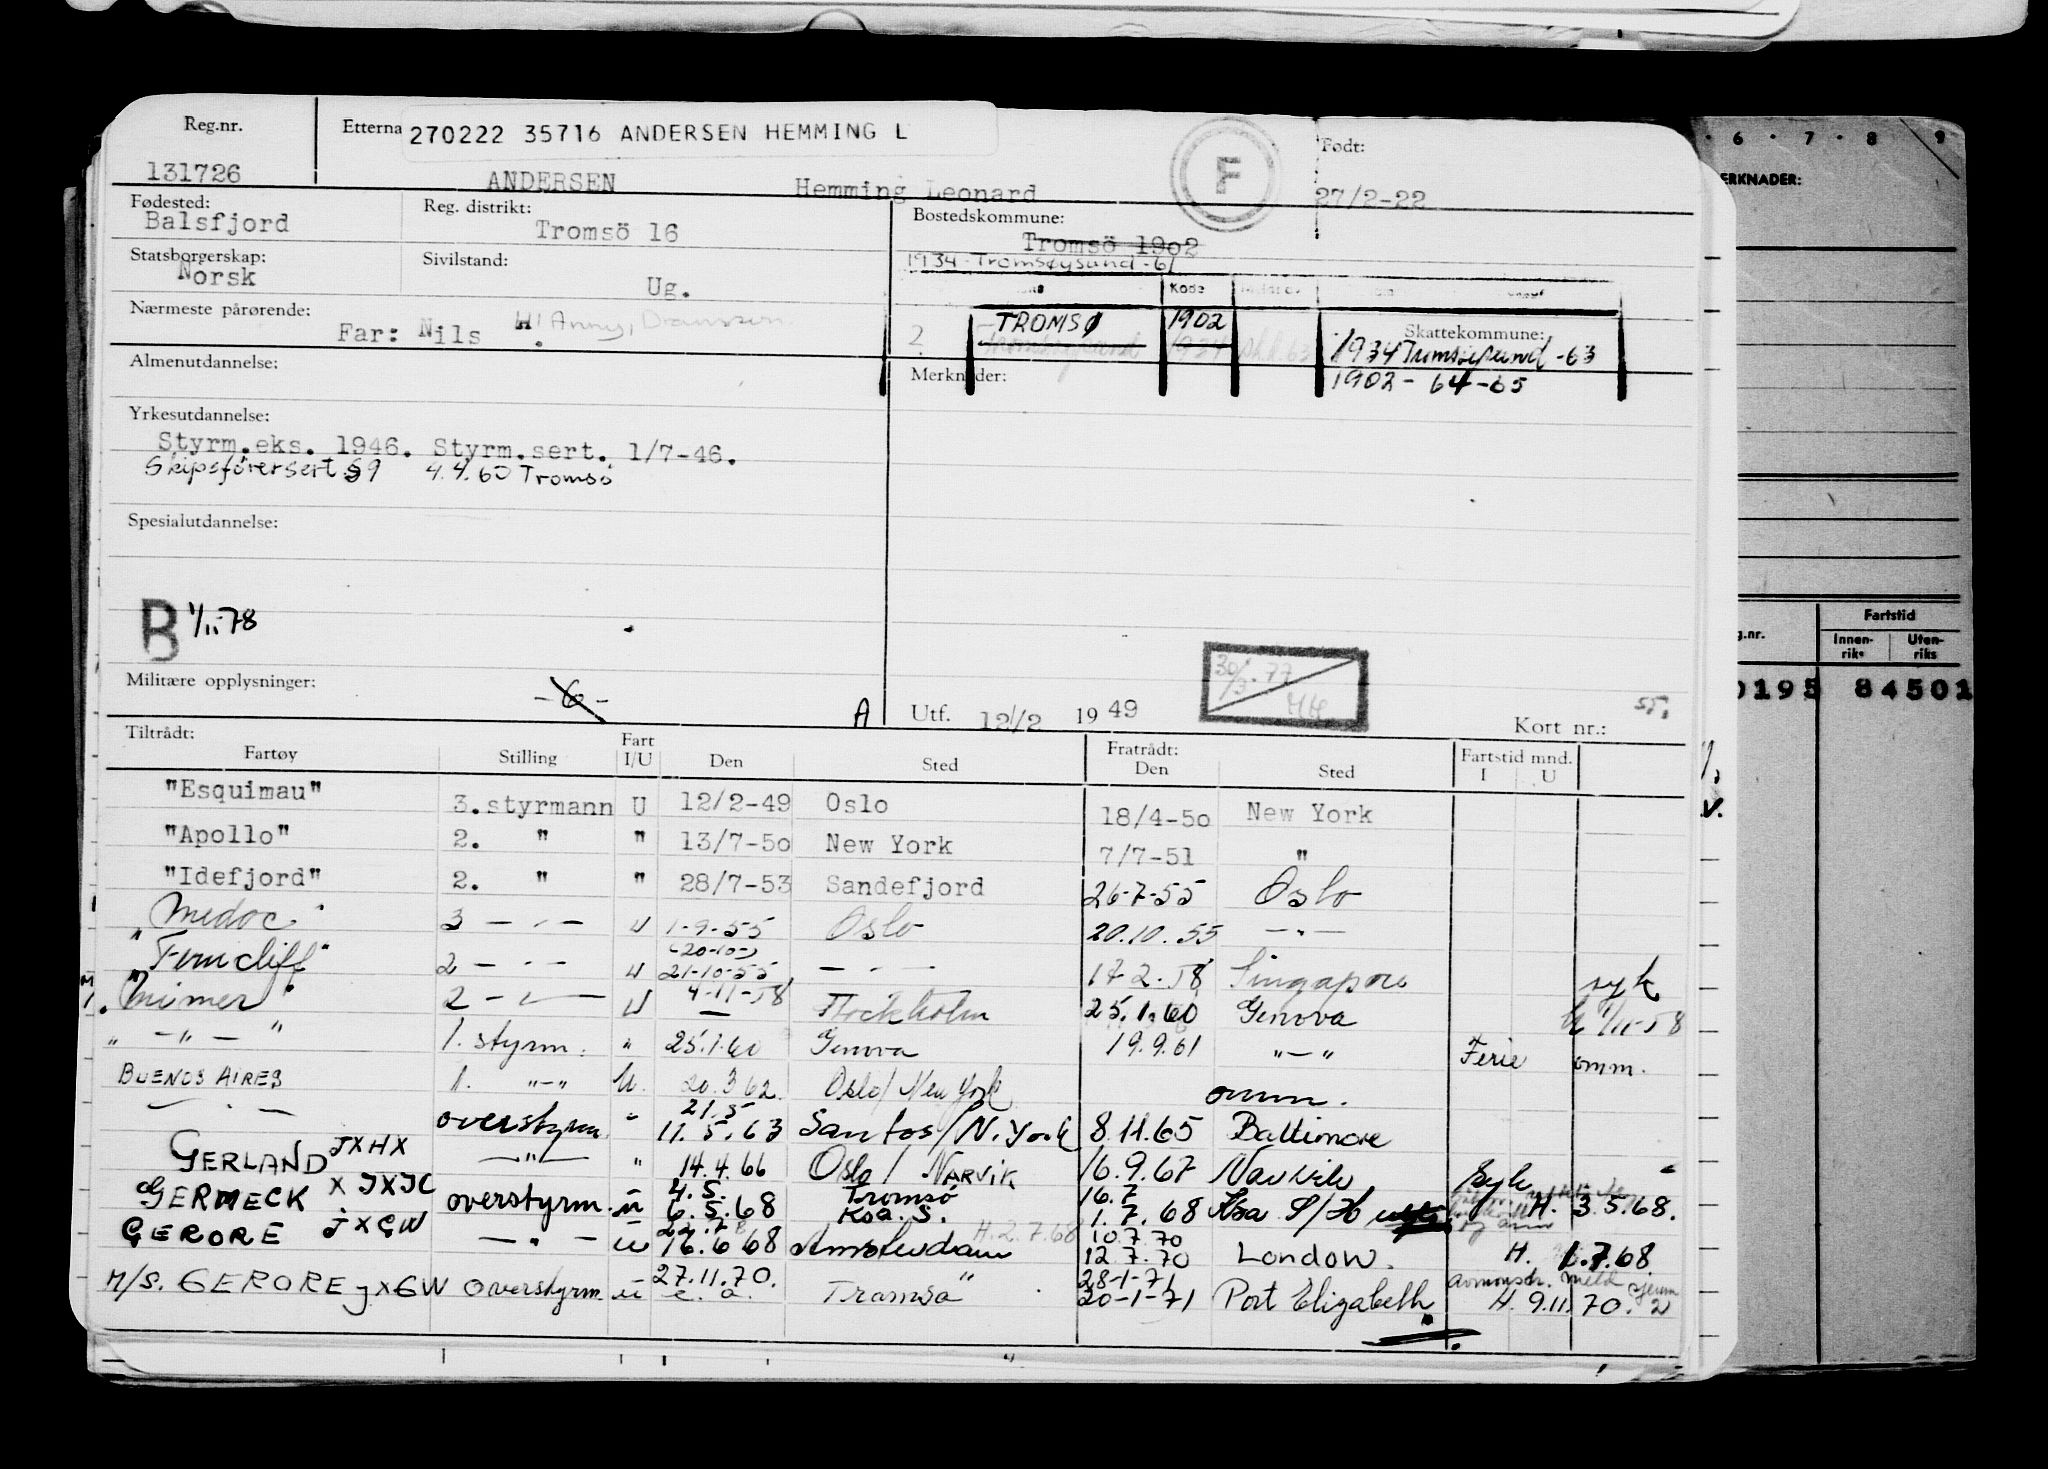 Reg.nr. Etterna 270222 35716 ANDERSEN HEMMING L F Født:
131726 ANDERSEN Hemming Leonard 27/2-22
Fødested: Reg. distrikt: Bostedskommune:
Balsfjord Tromsö 16 Tromsö 1902
1934-Tromsøysund-61
Statsborgerskap: Sivilstand:
Norsk Ug.
Kode
Nærmeste pårørende:
Far: Nils H! Anny,
2. TROMSØ 1902 Skattekommune:
1934 Tromsøysund -63
Almenutdannelse: Merknader: 1902 - 64-65
Yrkesutdannelse:
Styrm.eks. 1946. Styrm.sert. 1/7-46.
Skipsförersert §9 4.4.60 Tromsö
Spesialutdannelse:
B 1/11-78
Militære opplysninger: -6- A Utf. 12/2 19 49 30/3.77 Kort nr.:
Tiltrådt: Fratrådt:
Fartøy Stilling Fart I/U Den Sted Den Sted Fartstid mnd. I U
"Esquimau" 3.styrmann U 12/2-49 Oslo 18/4-50 New York
"Apollo" 2. " " 13/7-50 New York 7/7-51 "
"Idefjord" 2. " " 28/7-53 Sandefjord 26-7-55 Oslo
"Medoc" 3 - " - U 1-9-55 Oslo 20.10.55 - " -
(20-10-)
"Ferncliff" 2 - " - U 21-10-55 - " - 17-2-58 Singapore syk
"Mimer" 2 - " - U 4-11-58 Stockholm 25.1.60 Genova 1/11-58
" - " - " 1. styrm. " 25.1.60 Genova 19.9.61 " - " Ferie omm.
BUENOS AIRES 1. " - " U. 20.3.62 Oslo/New York omm.
- " - overstyrm. " 21.5 11.5.63 Santos/N. York 8.11.65 Baltimore
GERLAND JXHX - " - " 14.4.66 Oslo/NARVIK 16.9.67 Narvik Syk
GERMECK X JXJC overstyrm. u 4.5. 6.5.68 Tromsö Koa. S. 16.7 1.7.68 H. 3.5.68.
GERORE JXGW - " - u 16.6 68 Amsterdam H.2.7.68 10.7.70 12.7.70 London. H. 1.7.68
M/S. GERORE JXGW overstyrm. u 27.11.70. e. a. Tromsø 28-1-71 20-1-71 Port Elizabeth H. 9.11.70.
6 · 7 · 8 9
ERKNADER:
g.nr. Fartstid
Innen-riks Uten-riks
0195 84501